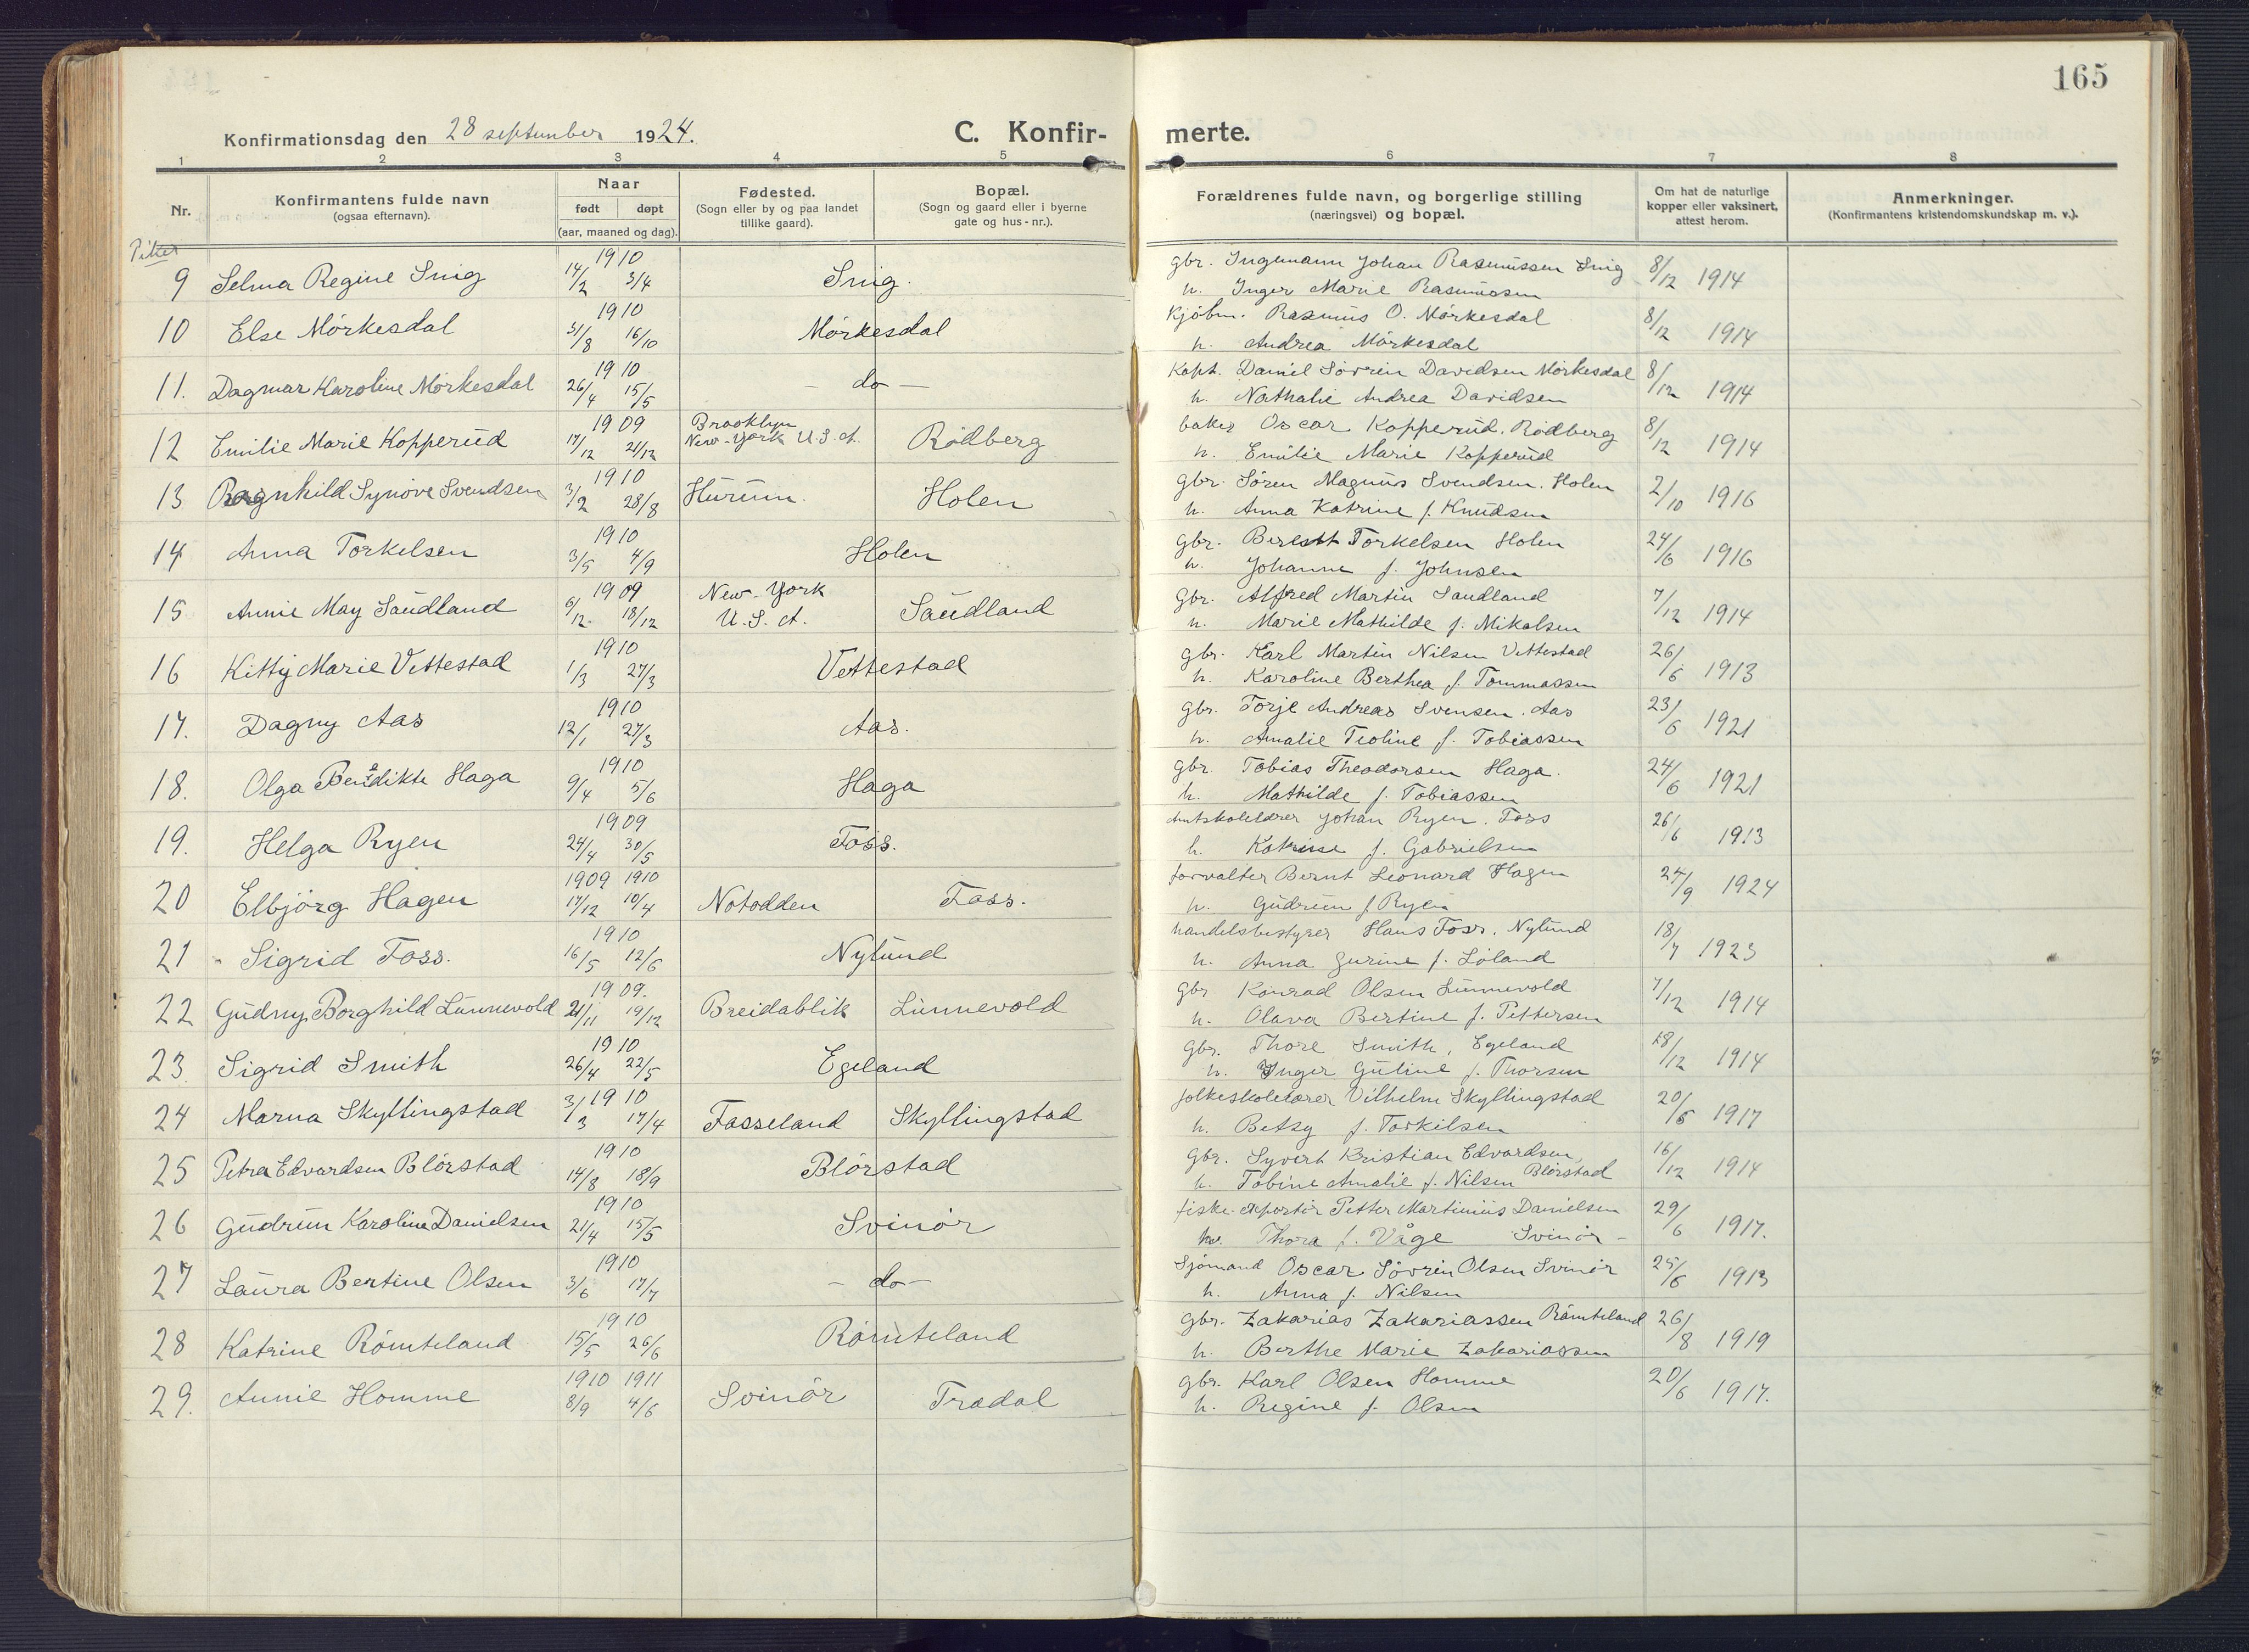 165
Konfirmationsdag den 28 september 1924.
C. Konfirmerte.
1 2 3 4 5 6 7 8
Nr.
Konfirmantens fulde navn
(ogsaa efternavn).
Naar
født døpt
(aar, maaned og dag).
Fødested.
(Sogn eller by og paa landet
tillike gaard).
Bopæl.
(Sogn og gaard eller i byerne
gate og hus-nr.).
Forældrenes fulde navn, og borgerlige stilling
(næringsvei) og bopæl.
Om hat de naturlige
kopper eller vaksinert,
attest herom.
Anmerkninger.
(Konfirmantens kristendomskundskap m. v.).
Piker
9 Selma Regine Snig 1910 14/2 3/4 Snig. gbr. Ingemann Johan Rasmussen Snig 8/12 1914
h. Inger Marie Rasmussen
10 Else Mörkesdal 1910 31/8 16/10 Mörkesdal Kjöbm. Rasmus O. Mörkesdal 8/12 1914
h. Andrea Mörkesdal
11. Dagmar Karoline Mörkesdal 1910 26/4 15/5 - do - Kapt. Daniel Sövrin Davidsen Mörkesdal 8/12 1914
h. Nathalie Andrea Davidsen
12 Emilie Marie Kopperud 1909 17/12 21/12 Brooklyn New-York U.S.A. Rödberg baker Oscar Kopperud. Rödberg 8/12 1914
h. Emilie Marie Kopperud
13 Ragnhild Synöve Svendsen 1910 3/2 28/8 Hurum. Holen gbr. Sören Magnus Svendsen. Holen 2/10 1916
h. Anna Katrine f. Knudsen
14 Anna Torkelsen 1910 3/5 4/9 Holen gbr. Torkelsen Holen 24/6 1916
h. Johanne f. Johnsen
15 Annie May Saudland 1909 6/12 18/12 New-York U.S.A. Saudland gbr. Alfred Martin Saudland 7/12 1914
h. Marie Mathilde f. Mikalsen
16 Kitty Marie Vettestad 1910 1/3 27/3 Vettestad gbr. Karl Martin Nilsen Vettestad 26/6 1913
h. Karoline Berthea f. Tommassen
17. Dagny Aas 1910 12/1 27/3 Aas. gbr. Torje Andreas Svensen. Aas 23/6 1921
h. Amalie Teoline f. Tobiassen
18. Olga Benedikte Haga 1910 9/4 5/6 Haga gbr. Tobias Theodorsen Haga. 24/6 1921
h. Mathilde f. Tobiassen
19. Helga Ryen 1909 24/4 30/5 Foss. Amtskolelærer Johan Ryen. Foss 26/6 1913
h. Katrine f. Gabrielsen
20 Elbjörg Hagen 1909 1910 17/12 10/4 Notodden Foss. forvalter Bernt Leonard Hagen 24/9 1924
h. Gudrun f. Ryen
21 Sigrid Foss. 1910 16/5 12/6 Nylund handelsbestyrer Hans Foss. Nylund 18/7 1923
h. Anna Gurine f. Löland
22 Gudny Borghild Lunnevold 1909. 21/11 19/12 Breidablik Lunnevold gbr Konrad Olsen Lunnevold 7/12 1914
h. Olava Bertine f. Pettersen
23. Sigrid Smith 1910 26/4 22/5 Egeland gbr. Thore Smith, Egeland 18/12 1914
h. Inger Gutine f. Thorsen
24 Marna Skyllingstad 1910 3/3 17/4 Fasseland Skyllingstad folkeskolelærer Vilhelm Skyllingstad 20/6 1917
h. Betsy f. Torkilsen
25 Petra Edvardsen Blörstad 1910 14/8 18/9 Blörstad gbr. Syvert Kristian Edvardsen, 16/12 1914
h. Tobine Amalie f. Nilsen Blörstad
26 Gudrun Karoline Danielsen 1910 21/4 15/5 Svinör fiske-exportör Petter Martinius Danielsen 29/6 1917.
h. Thora f. Våge Svinör -
27 Laura Bertine Olsen 1910 3/6 17/7 - do - Sjömand Oscar Sövrin Olsen Svinör 25/6 1913
h. Anna f. Nilsen
28 Katrine Römteland 1910 15/5 26/6 Römteland gbr. Zakarias Zakariassen Römteland 26/8 1919
h. Berthe Marie Zakariassen
29. Annie Homme 1910 1911 8/9 4/6 Svinör Tradal gbr. Karl Olsen Homme 20/6 1917.
h. Regine f. Olsen